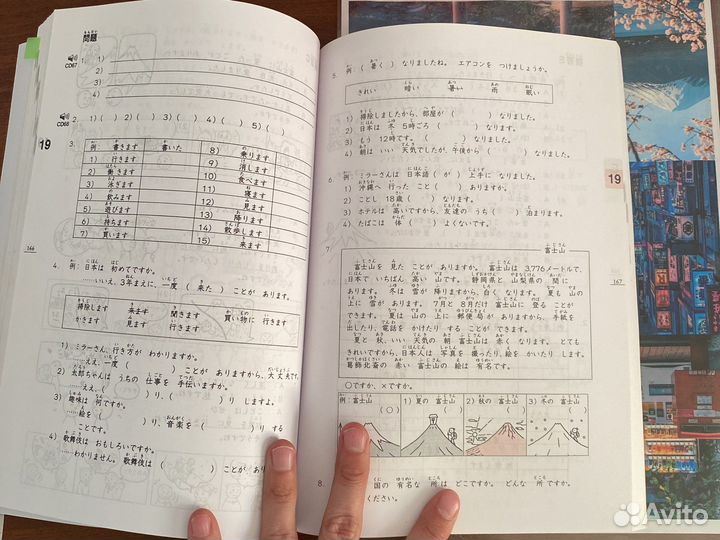 問題
CD67
1. 1)
2)
3)
4)
CD68
2. 1)( ) 2)( ) 3)( ) 4)( ) 5)( )
19
3.
例：書きます 書いた 8) 乗ります
1) 行きます 9) 消します
2) 働きます 10) 食べます
3) 泳ぎます 11) 寝ます
4) 飲みます 12) 見ます
5) 遊びます 13) 降ります
6) 持ちます 14) 散歩します
7) 買います 15) 来ます
166
4. 例：日本は 初めてですか。
……いいえ、3年まえに、一度 ( 来た ) ことが あります。
掃除します 来ます 聞きます 買い物に 行きます
かきます 見ます 行きます
1) ミラーさん、行き方が わかりますか。
……ええ、一度 ( ) ことが ありますから、大丈夫です。
2) 太郎ちゃんは うちの 仕事を 手伝いますか。
……ええ。( )り、( )り しますよ。
3) 趣味は 何ですか。
……絵を ( )り、音楽を ( )り する
ことです。
4) 歌舞伎は おもしろいですか。
……わかりません。歌舞伎は ( ) ことが あ
5. 例：( 暑く ) なりましたね。 エアコンを つけましょうか。
きれい 暗い 暑い 雨 眠い
1) 掃除しましたから、部屋が ( ) なりました。
2) 日本は 冬 5時ごろ ( ) なります。
3) もう 12時です。( ) なりました。
4) 朝は いい 天気でしたが、午後から ( ) なりました。
19
6. 例：ミラーさんは 日本語 ( が ) 上手に なりました。
1) 沖縄へ 行った こと ( ) ありますか。
2) ことし 18歳 ( ) なります。
3) ホテルは 高いですから、友達の うち ( ) 泊まります。
4) たばこは 体 ( ) よくないです。
7.
富士山
富士山を 見た ことが ありますか。 富士山は 3,776メートルで、
日本で いちばん 高い 山です。 静岡県と 山梨県の 間に
あります。 冬は 雪が 降りますから、白く なります。 夏も 山の
上に 雪が あります。 7月と 8月だけ 富士山に 登る ことが
できます。 夏は 山の 上に 郵便局が ありますから、手紙を
出したり、電話を かけたり する ことが できます。
夏と 秋、いい 天気の 朝 富士山は 赤く なります。 とても
きれいですから、日本人は 写真を 撮ったり、絵を かいたり します。
葛飾北斎の 赤い 富士山の 絵は 有名です。
167
○ですか、×ですか。
例：富士山 (○) 1) 夏の 富士山 ( ) 2) 秋の 富士山 ( ) 3) 冬の 富士山 ( )
8. 国の 有名な 所は どこですか。 どんな 所ですか。
ください。
Avito